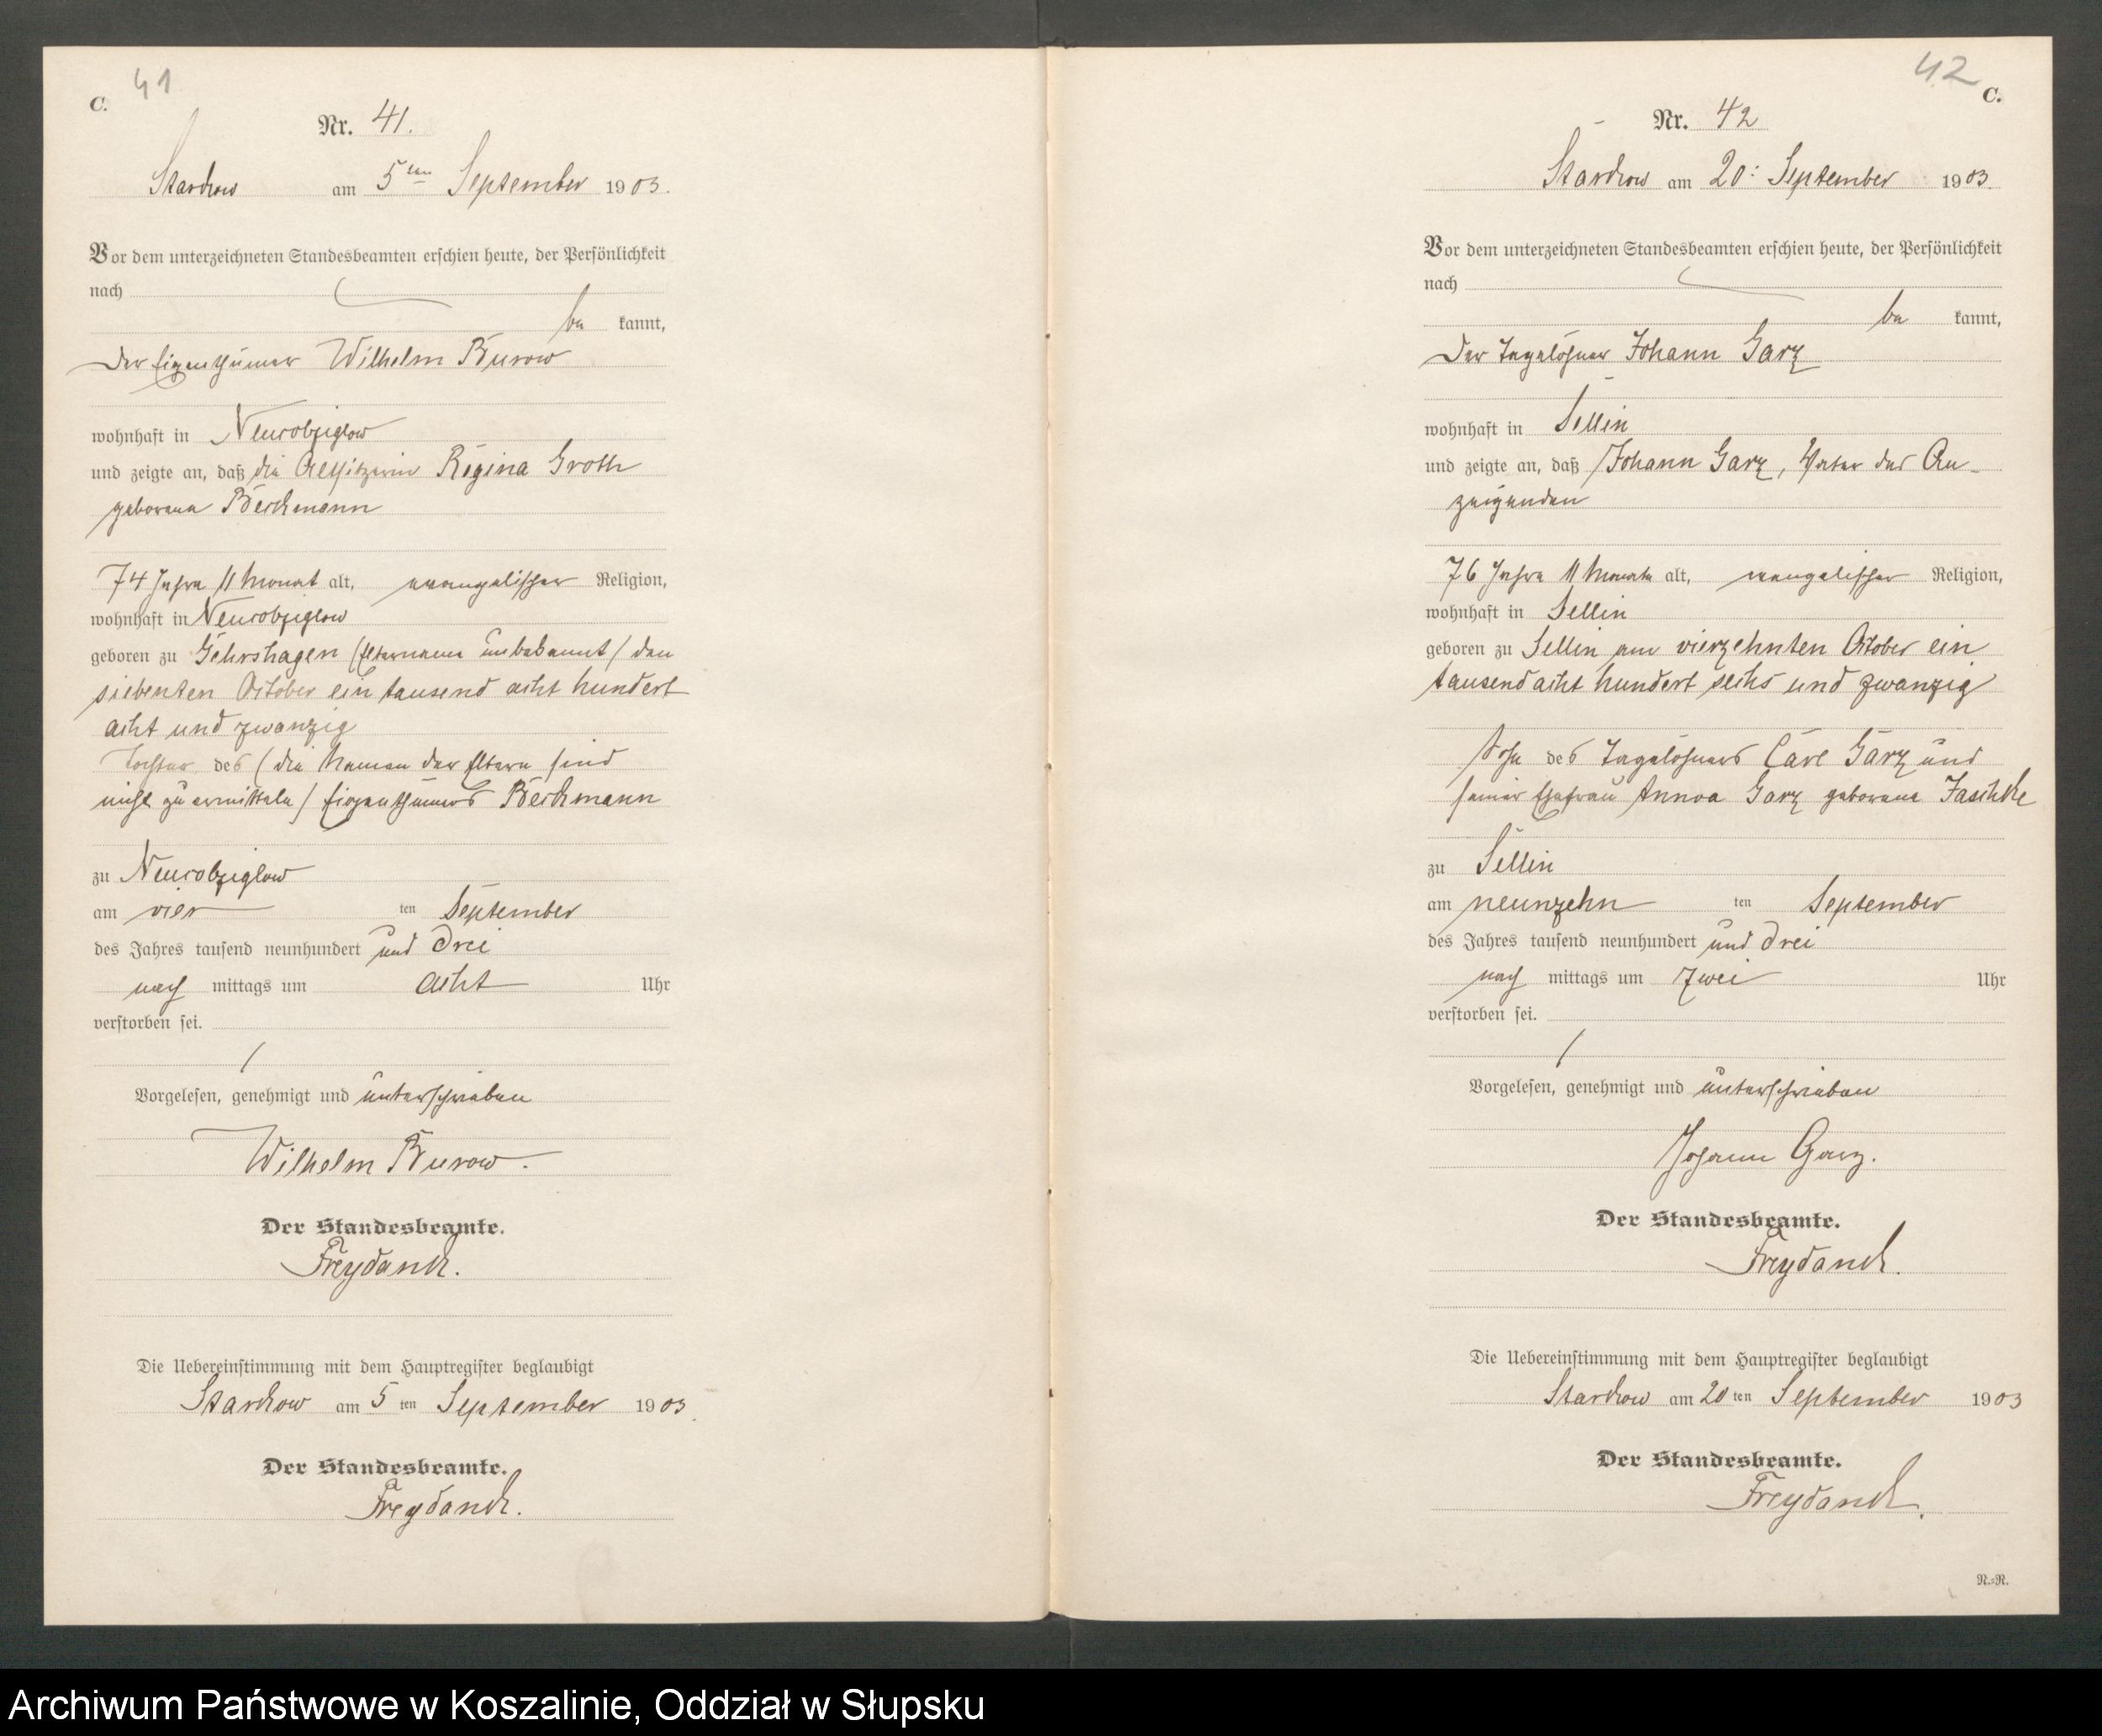 C. 41
Nr. 41.
Starkow am 5ten September 1903.
Vor dem unterzeichneten Standesbeamten erschien heute, der Persönlichkeit
nach
be kannt,
der Eigenthümer Wilhelm Burow
wohnhaft in Neucobziglow
und zeigte an, daß die Altsitzerin Regina Groth
geborene Beckmann
74 Jahre 11 Monat alt, evangelischer Religion,
wohnhaft in Neucobziglow
geboren zu Gehrshagen (Elternname unbekannt) den
siebenten October ein tausend acht hundert
acht und zwanzig
Tochter des (die Namen der Eltern sind
nicht zu ermitteln) Eigenthümers Beckmann
zu Neucobziglow
am vier ten September
des Jahres tausend neunhundert und drei
nach mittags um acht Uhr
verstorben sei.
Vorgelesen, genehmigt und unterschrieben
Wilhelm Burow.
Der Standesbeamte.
Freydanck.
Die Uebereinstimmung mit dem Hauptregister beglaubigt
Starkow am 5 ten September 1903.
Der Standesbeamte.
Freydanck.
42 C.
Nr. 42
Starkow am 20: September 1903.
Vor dem unterzeichneten Standesbeamten erschien heute, der Persönlichkeit
nach
be kannt,
der Tagelöhner Johann Garz
wohnhaft in Sellin
und zeigte an, daß Johann Garz, Vater des An-
zeigenden
76 Jahre 11 Monate alt, evangelischer Religion,
wohnhaft in Sellin
geboren zu Sellin am vierzehnten October ein
tausend acht hundert sechs und zwanzig
Sohn des Tagelöhners Carl Garz und
seiner Ehefrau Annva Garz geborene Jaschke
zu Sellin
am neunzehn ten September
des Jahres tausend neunhundert und drei
nach mittags um zwei Uhr
verstorben sei.
Vorgelesen, genehmigt und unterschrieben
Johann Garz.
Der Standesbeamte.
Freydanck.
Die Uebereinstimmung mit dem Hauptregister beglaubigt
Starkow am 20 ten September 1903
Der Standesbeamte.
Freydanck.
R.=R.
Archiwum Państwowe w Koszalinie, Oddział w Słupsku